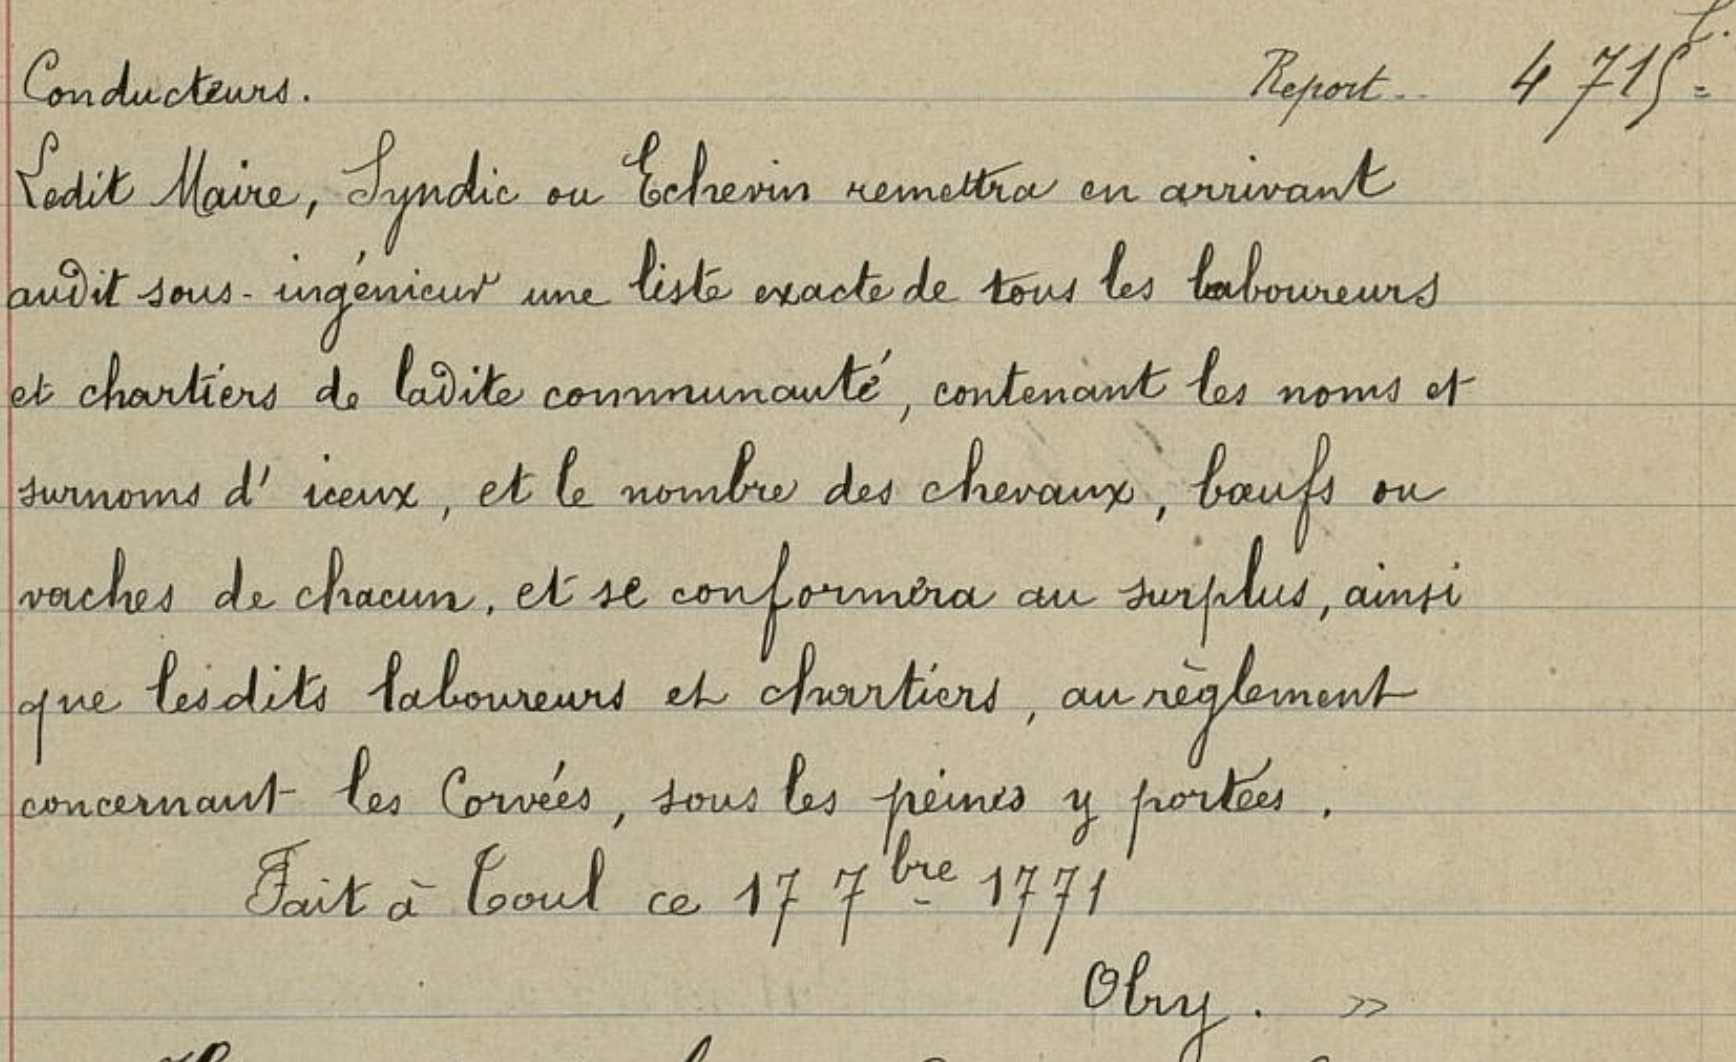 Conducteurs. Report... 4 715 =
Ledit Maire, Syndic ou Echevin remettra en arrivant
audit sous-ingénieur une liste exacte de tous les laboureurs
et chartiers de ladite communauté, contenant les noms et
surnoms d' iceux, et le nombre des chevaux, bœufs ou
vaches de chacun, et se conformera au surplus, ainsi
que lesdits laboureurs et chartiers, au règlement
concernant les Corvées, sous les peines y portées.
Fait à Toul ce 17 7bre 1771
Obry. »